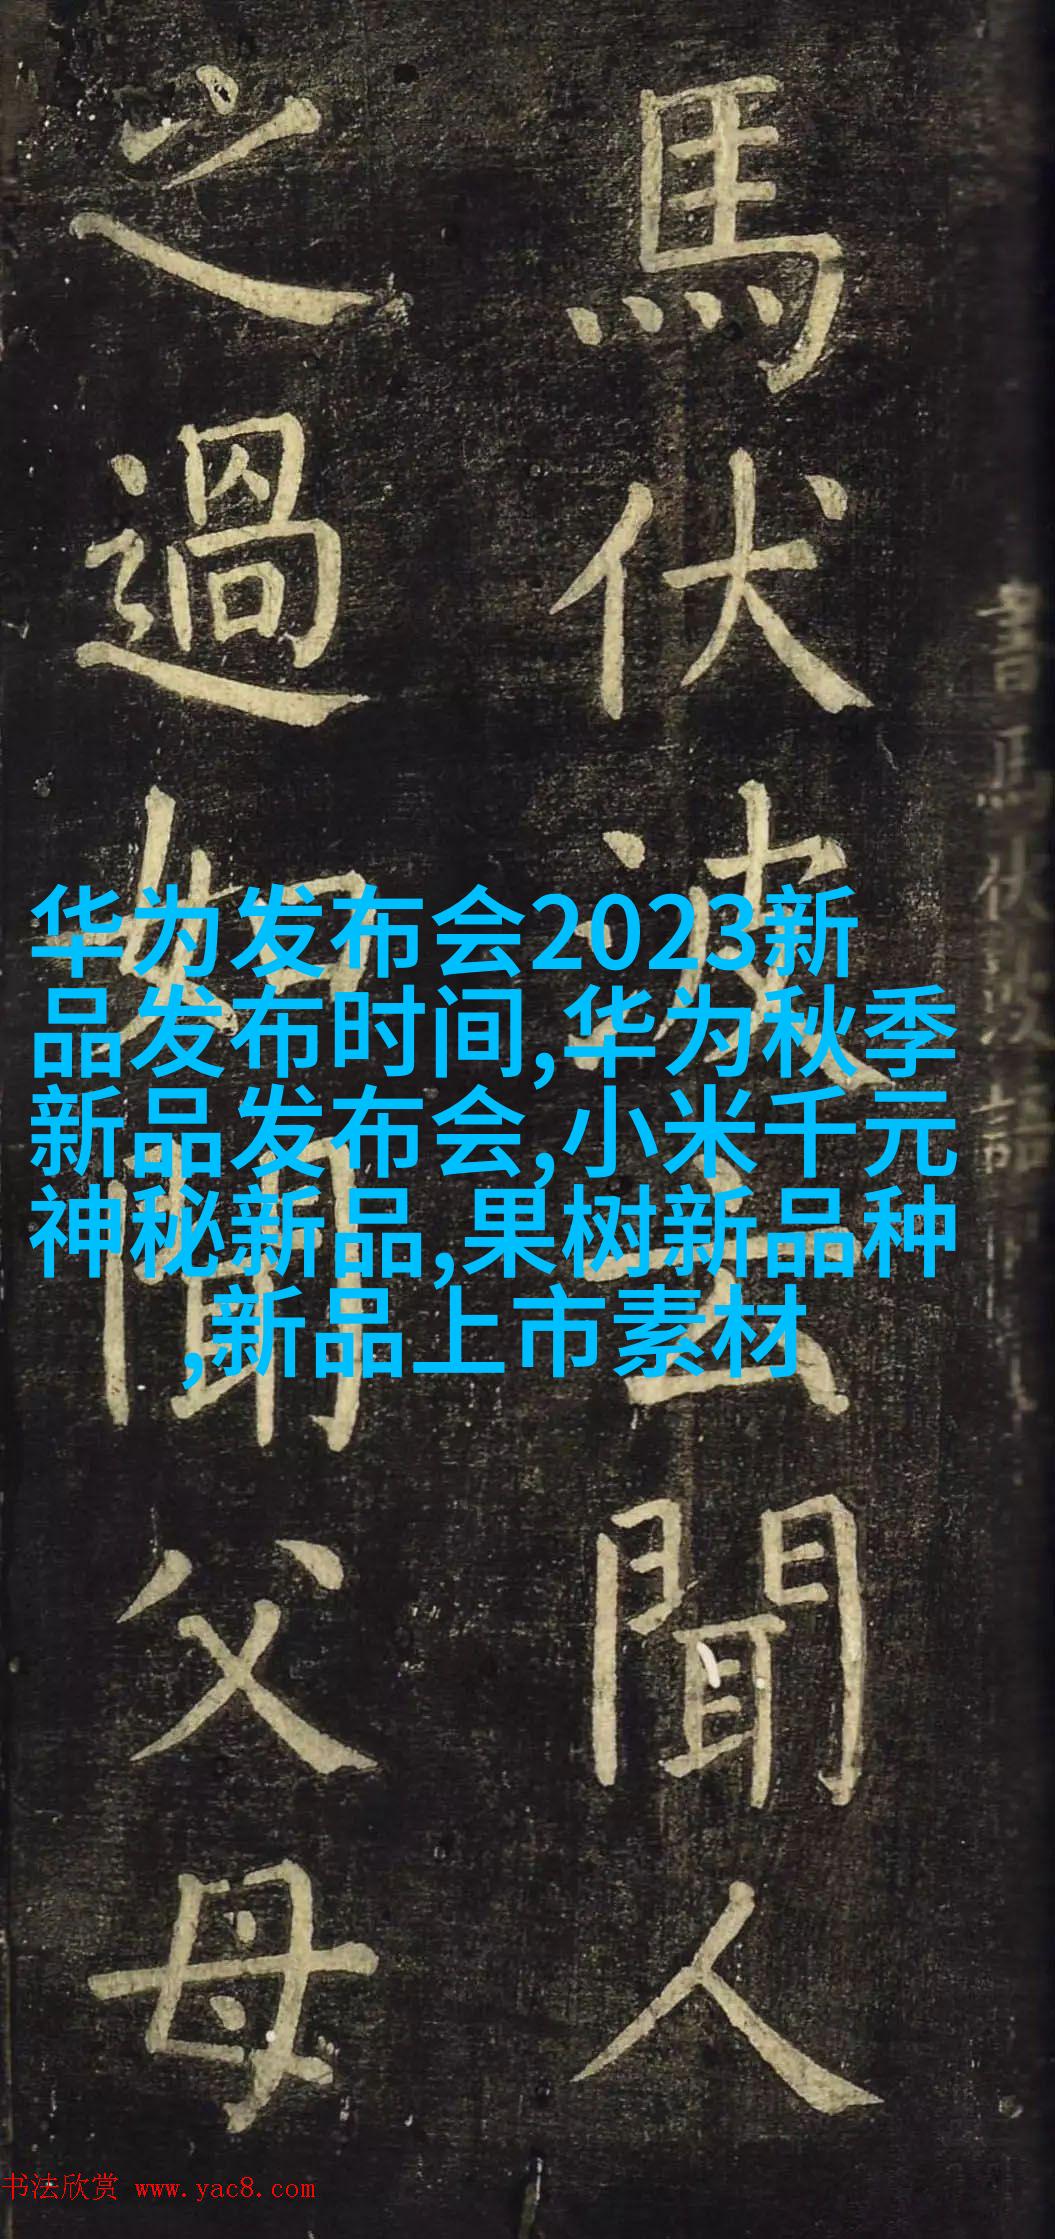 馬伏波云聞人
之過如聞父母
書馬伏波語
华为发布会2023新
品发布时间,华为秋季
新品发布会,小米千元
神秘新品,果树新品种
,新品上市素材
书法欣赏 www.yac8.com